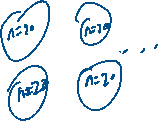 n=20 n=20 ...
n=20 n=20